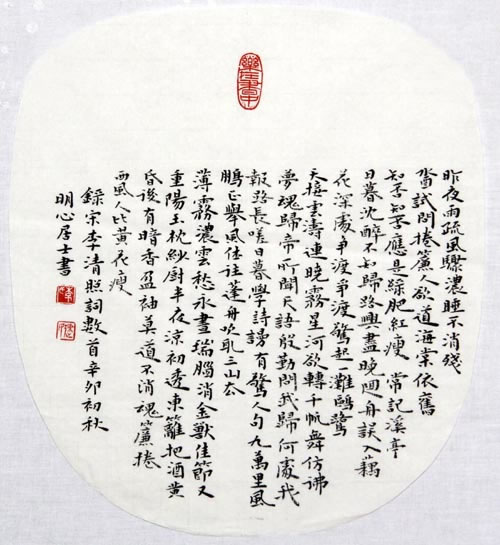 昨夜雨疏風驟濃睡不消殘
試問捲簾人欲道海棠依舊
知否知否應是綠肥紅瘦 常記溪亭
日暮沈醉不知歸路興盡晚迴舟誤入藕
花深處爭渡爭渡驚起一灘鷗鷺
天接雲濤連曉霧星河欲轉千帆舞仿彿
夢魂歸帝所聞天語殷勤問我歸何處我
報路長嗟日暮學詩謾有驚人句九萬里風
鵬正舉風休住蓬舟吹取三山去
薄霧濃雲愁永晝瑞腦消金獸佳節又
重陽玉枕紗廚半夜涼初透東籬把酒黃
昏後有暗香盈袖莫道不消魂簾捲
西風人比黃花瘦
錄宋李清照詞數首辛卯初秋
明心居士書